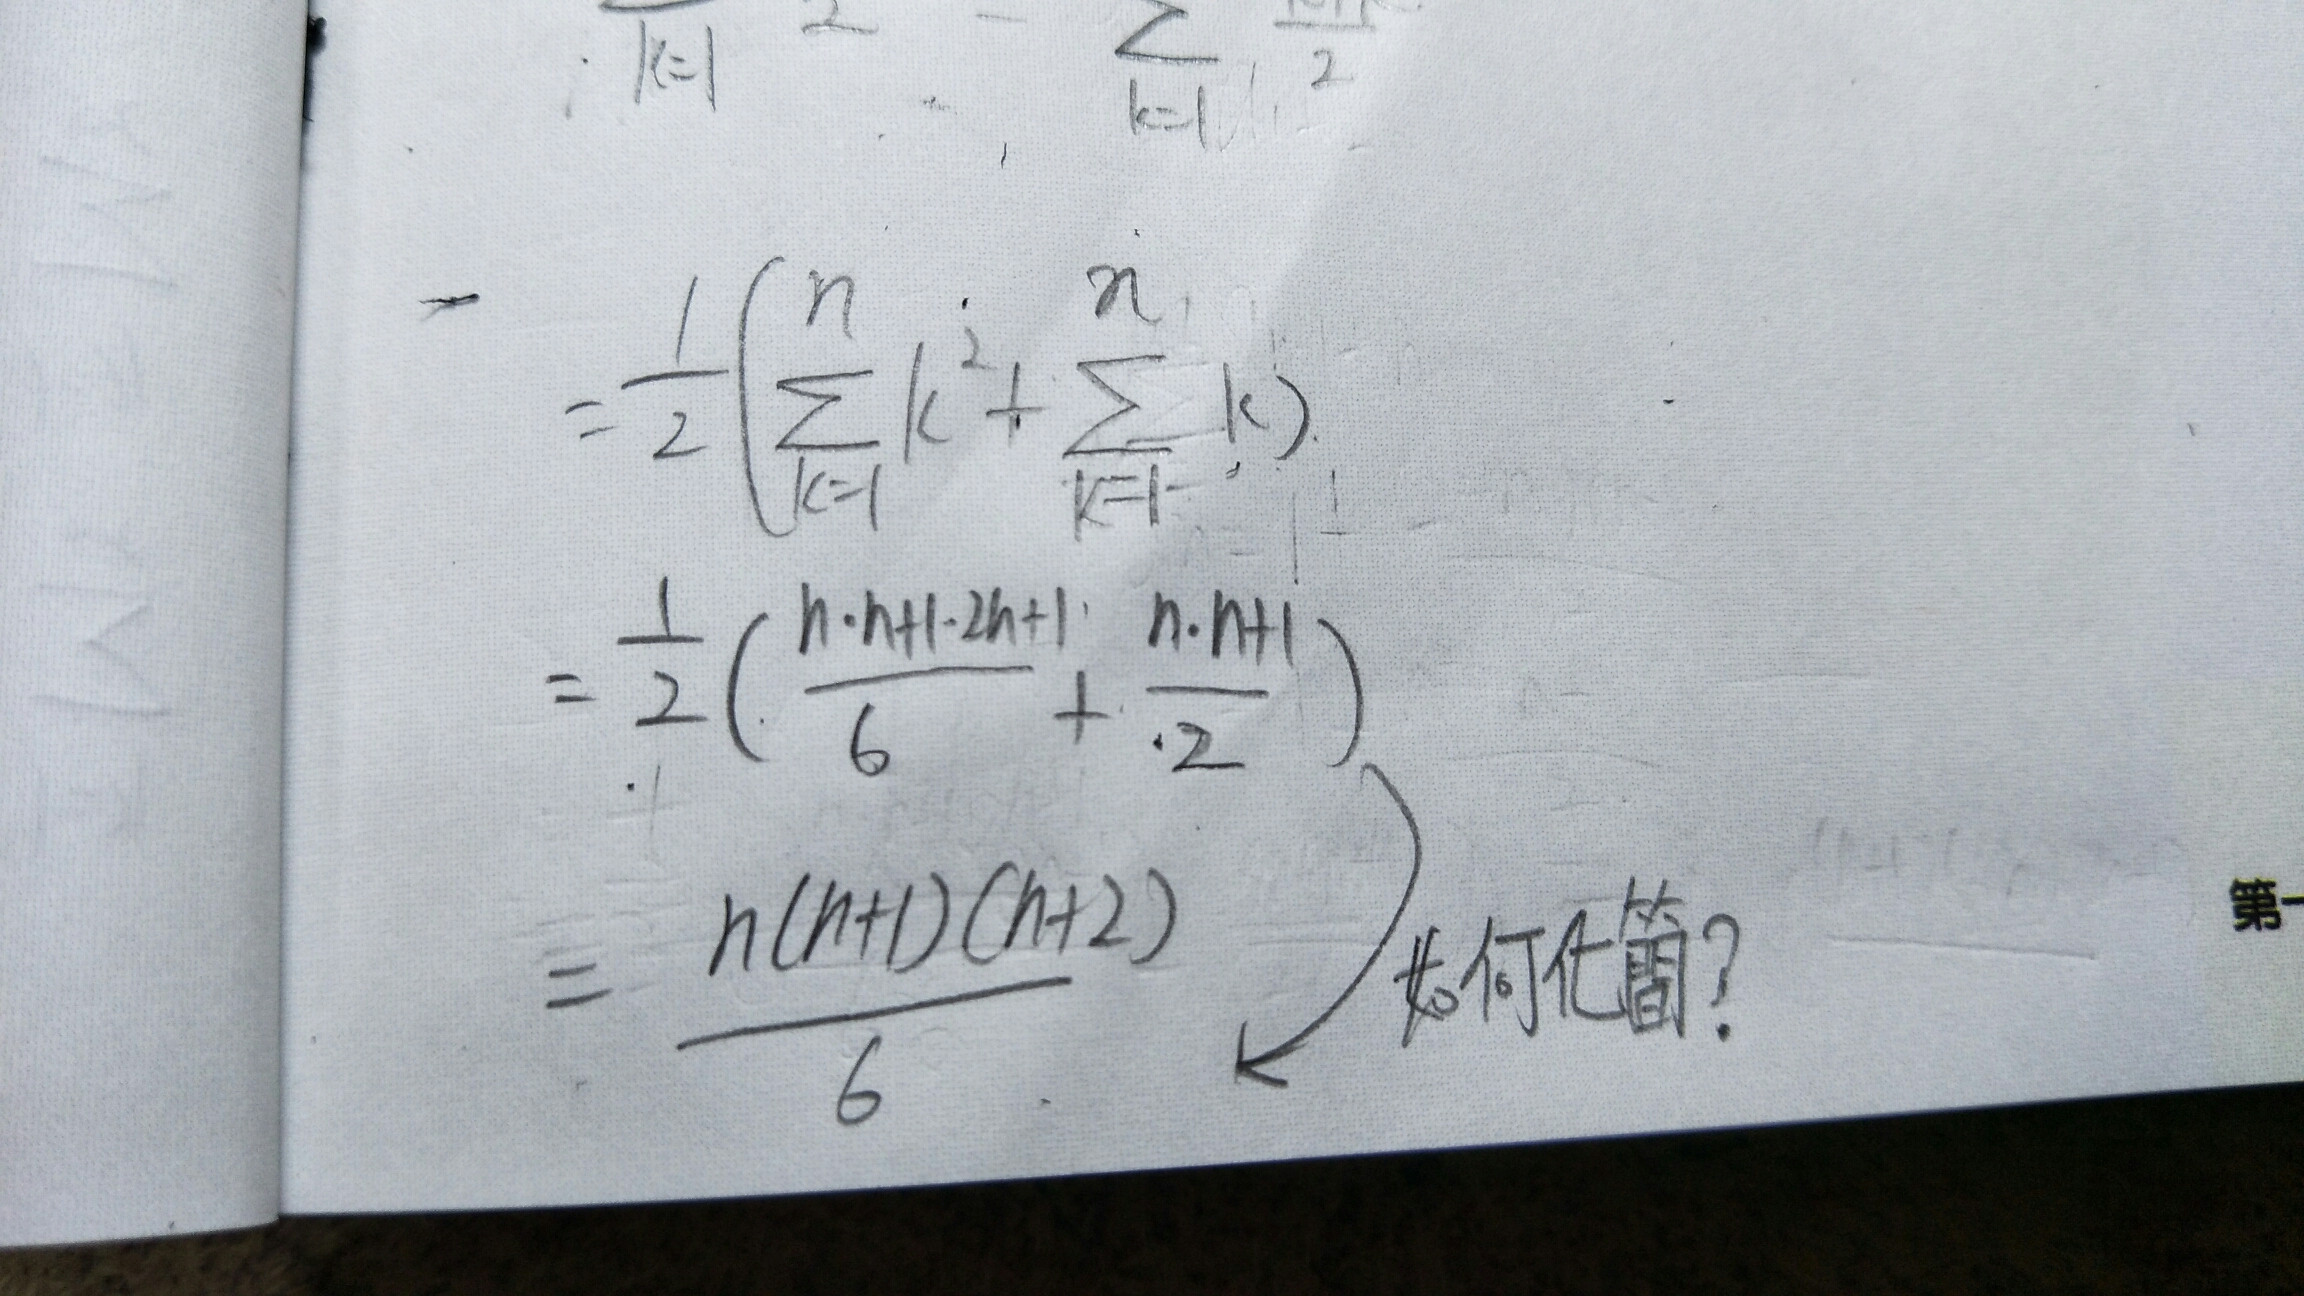 k=1 2 - ∑ k=1 2
= 1/2 ( n ∑ k=1 k² + n ∑ k=1 k )
= 1/2 ( n·n+1·2n+1 / 6 + n·n+1 / 2 )
= n(n+1)(n+2) / 6
如何化簡?
第一